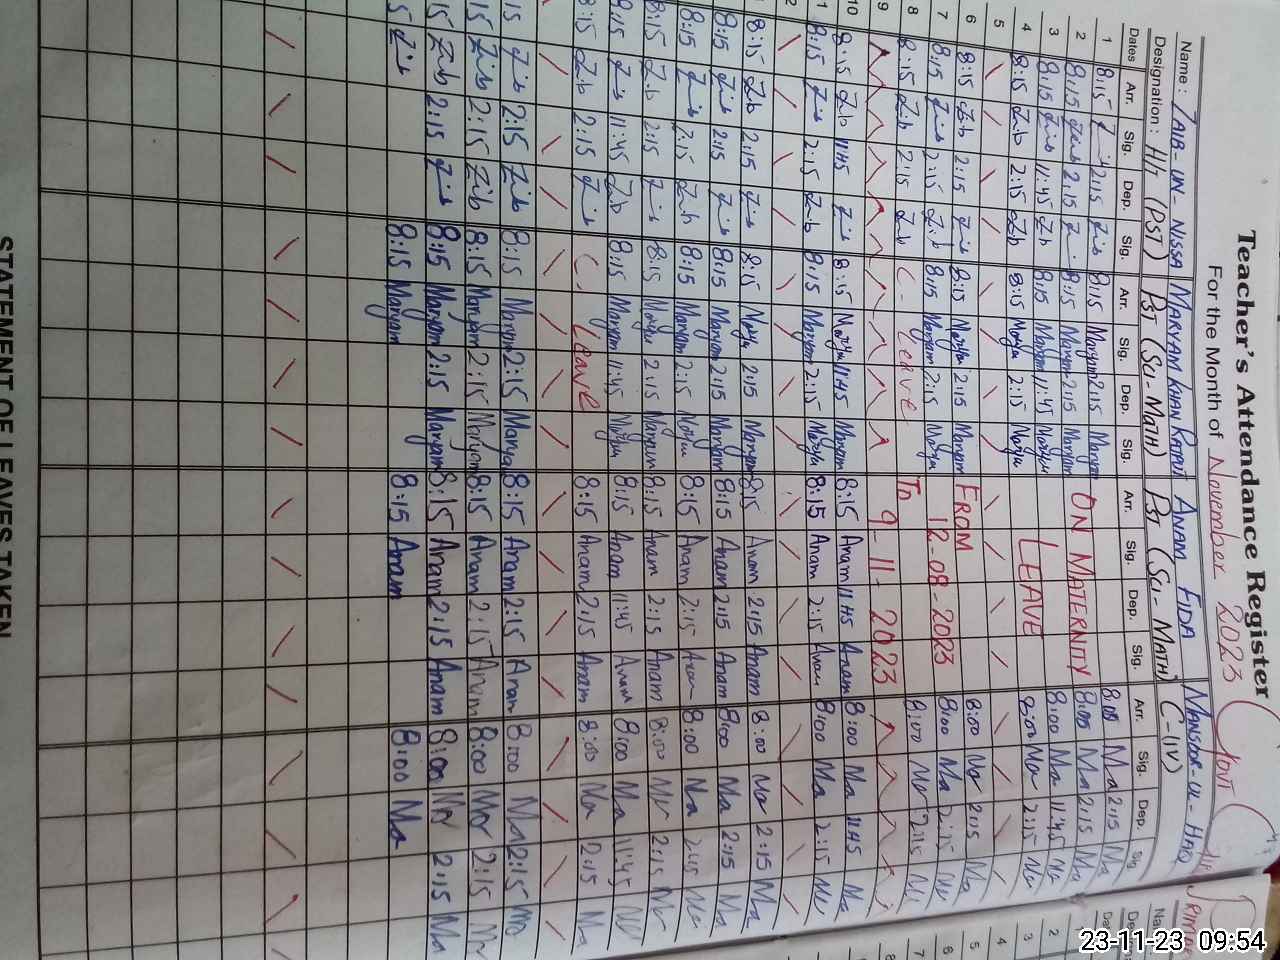 Teacher's Attendance Register
For the Month of November 2023
Name: ZAIB-UN-NISSA MARYAM KHAN ANAM FIDA MANSOR-UL-HAQ
Designation: H/T (PST) PST (Sci-Math) PST (Sci-Math) C-(IV)
Dates Arr. Sig. Dep. Sig. Arr. Sig. Dep. Sig. Arr. Sig. Dep. Sig. Arr. Sig. Dep. Sig.
1 8:15 2:15 Zib 8:15 Maryam 2:15 Maryam 8:00 Ma 2:15 Ma
2 8:15 Zib 2:15 8:15 Maryam 2:15 Maryam ON MATERNITY 8:00 Ma 2:15 Ma
3 8:15 Zib 11:45 Zib 8:15 Maryam 11:45 Maryam 8:00 Ma 11:45 Ma
4 8:15 Zib 2:15 Zib 8:15 Maryam 2:15 Maryam LEAVE 8:00 Ma 2:15 Ma
5
6 8:15 Zib 2:15 Zib 8:15 Maryam 2:15 Maryam FROM 8:00 Ma 2:15 Ma
7 8:15 Zib 2:15 Zib 8:15 Maryam 2:15 Maryam 12-08-2023 8:00 Ma 2:15 Ma
8 8:15 Zib 2:15 Zib C. Leave To 8:00 Ma 2:15 Ma
9 9-11-2023
10 8:15 Zib 11:45 Zib 8:15 Maryam 11:45 Maryam 8:15 Anam 11:45 Anam 8:00 Ma 11:45 Ma
1 8:15 Zib 2:15 Zib 8:15 Maryam 2:15 Maryam 8:15 Anam 2:15 Anam 8:00 Ma 2:15 Ma
2
8:15 Zib 2:15 Zib 8:15 Maryam 2:15 Maryam 8:15 Anam 2:15 Anam 8:00 Ma 2:15 Ma
8:15 Zib 2:15 Zib 8:15 Maryam 2:15 Maryam 8:15 Anam 2:15 Anam 8:00 Ma 2:15 Ma
8:15 Zib 2:15 Zib 8:15 Maryam 2:15 Maryam 8:15 Anam 2:15 Anam 8:00 Ma 2:15 Ma
8:15 Zib 2:15 Zib 8:15 Maryam 2:15 Maryam 8:15 Anam 2:15 Anam 8:00 Ma 2:15 Ma
8:15 Zib 11:45 Zib 8:15 Maryam 11:45 Maryam 8:15 Anam 11:45 Anam 8:00 Ma 11:45 Ma
8:15 Zib 2:15 Zib C. Leave 8:15 Anam 2:15 Anam 8:00 Ma 2:15 Ma
15 Zib 2:15 Zib 8:15 Maryam 2:15 Maryam 8:15 Anam 2:15 Anam 8:00 Ma 2:15 Ma
15 Zib 2:15 Zib 8:15 Maryam 2:15 Maryam 8:15 Anam 2:15 Anam 8:00 Ma 2:15 Ma
15 Zib 2:15 Zib 8:15 Maryam 2:15 Maryam 8:15 Anam 2:15 Anam 8:00 Ma 2:15 Ma
5 Zib 8:15 Maryam 8:15 Anam 8:00 Ma
STATEMENT OF LEAVES TAKEN
23-11-23 09:54